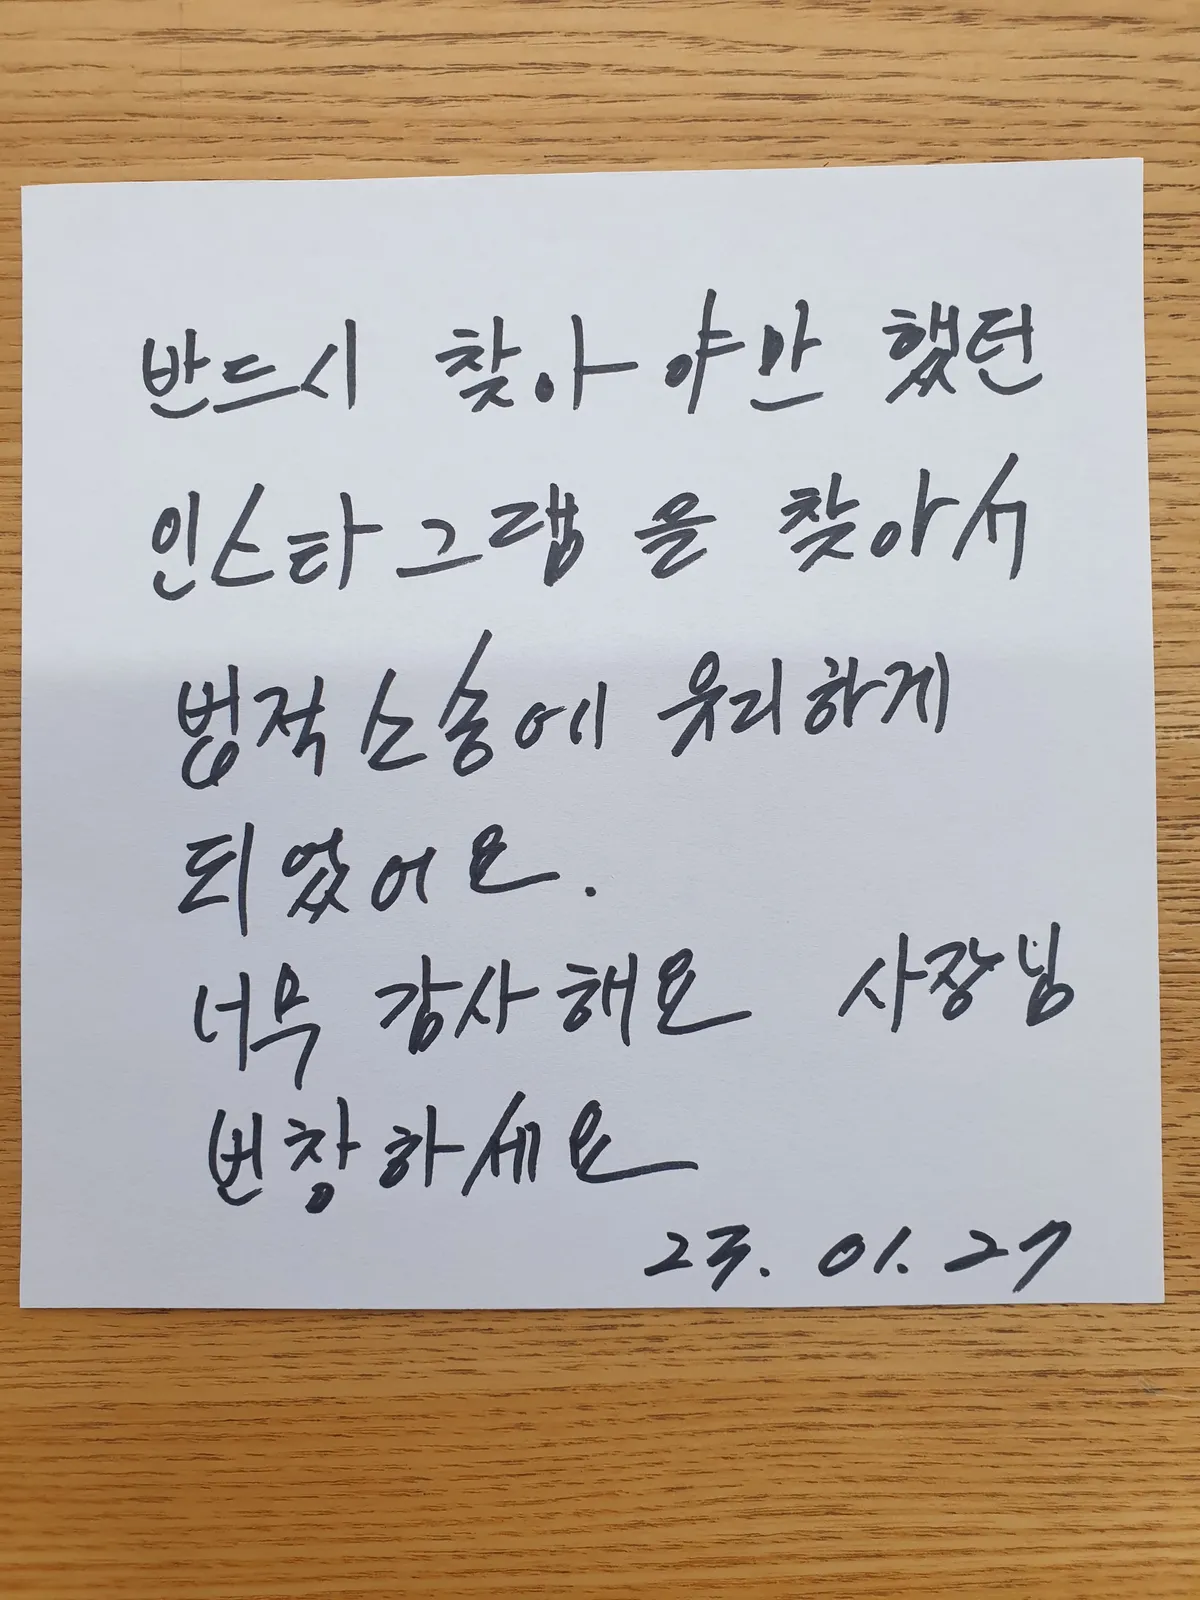 반드시 찾아야만 했던
인스타그램을 찾아서
법적소송에 유리하게
되었어요.
너무 감사해요 사장님
번창하세요
23. 01. 27